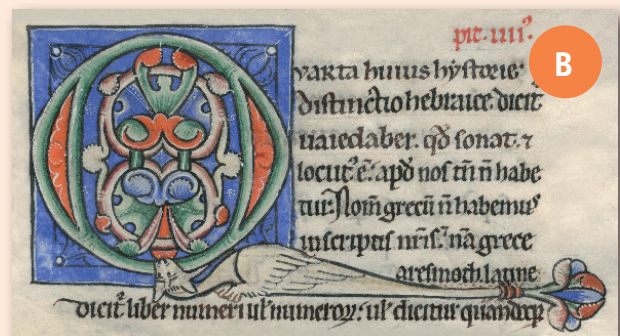 pit·iiii.
B
Quarta huius hystorie
distinctio hebraice dicit
uaiedaber. qd sonat. ⁊
locut' e. apd nos tn n habe
tur. Nom grecu n habemus
inscriptis nris. na grece
aresmoth latine
dicit' liber numeri ul' numeroꝝ. ul' dicitur quandoqꝫ